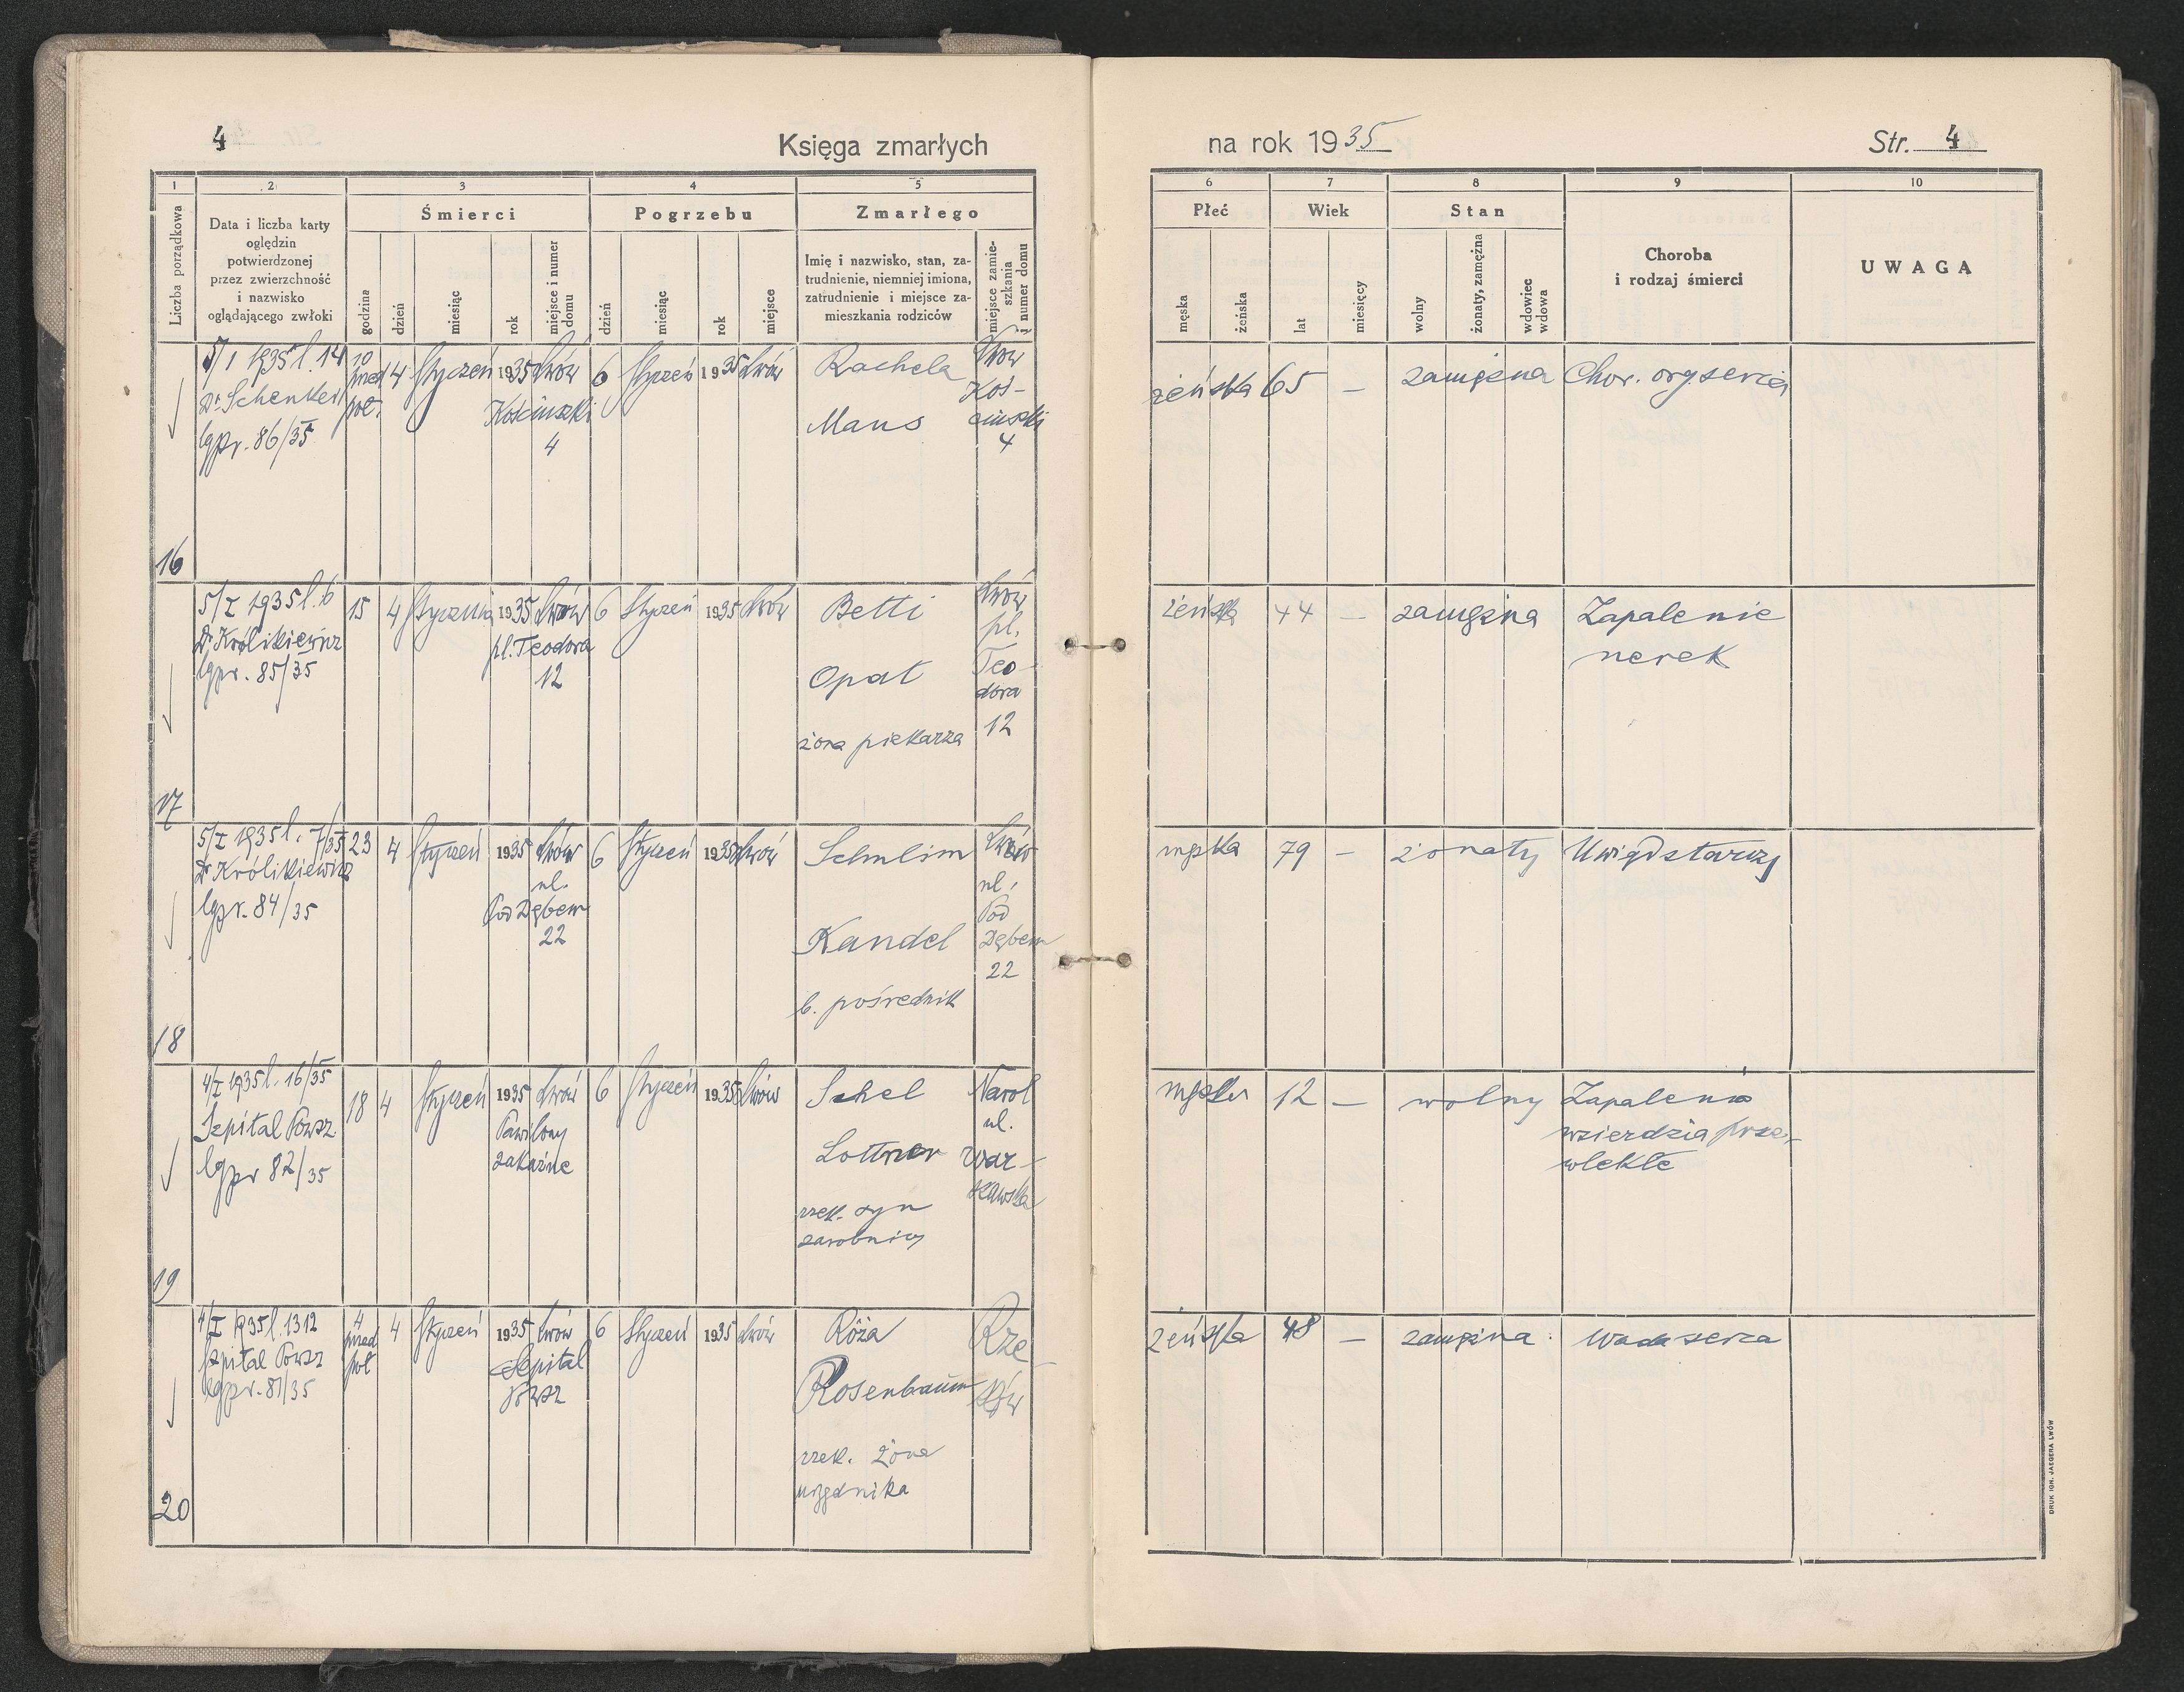 4
Księga zmarłych
na rok 1935
Str. 4
1 2 3 4 5 6 7 8 9 10
Liczba porządkowa
Data i liczba karty
oględzin
potwierdzonej
przez zwierzchność
i nazwisko
oglądającego zwłoki
Śmierci
godzina
dzień
miesiąc
rok
miejsce i numer
domu
Pogrzebu
dzień
miesiąc
rok
miejsce
Zmarłego
Imię i nazwisko, stan, za-
trudnienie, niemniej imiona,
zatrudnienie i miejsce za-
mieszkania rodziców
miejsce zamie-
szkania
i numer domu
Płeć
męska
żeńska
Wiek
lat
miesięcy
Stan
wolny
żonaty, zamężna
wdowiec
wdowa
Choroba
i rodzaj śmierci
UWAGA
16
5/1 1935 l. 14
Dr. Schenker
lgpr. 86/35
10
przed
poł.
4
Styczeń
1935
Lwów
Kościuszki
4
6
Styczeń
1935
Lwów
Rachela
Maus
Lwów
Koś-
ciuszki
4
żeńska
65
—
zamężna
Chor. org. serca
17
5/I 1935 l. 6
Dr. Królikiewicz
lgpr. 85/35
15
4
Stycznia
1935
Lwów
pl. Teodora
12
6
Styczeń
1935
Lwów
Betti
Opat
żona piekarza
Lwów
pl.
Teo-
dora
12
żeńska
44
—
zamężna
Zapalenie
nerek
18
5/I 1935 l. 7/35
Dr Królikiewicz
lgpr. 84/35
23
4
Styczeń
1935
Lwów
ul.
Pod Dębem
22
6
Styczeń
1935
Lwów
Schulim
Kandel
b. pośrednik
Lwów
ul.
Pod
Dębem
22
męska
79
—
żonaty
Uwiąd starczy
19
4/I 1935 l. 16/35
Szpital Powsz
lgpr 82/35
18
4
Styczeń
1935
Lwów
Pawilony
zakaźne
6
Styczeń
1935
Lwów
Schel
Lottner
rzek. syn
zarobnicy
Narol
ul.
War-
szawska
męska
12
—
wolny
Zapalenie
wsierdzia prze-
wlekłe
20
4/I 1935 l. 1312
Szpital Powsz
lgpr. 81/35
4
przed
poł
4
Styczeń
1935
Lwów
Szpital
Powsz
6
Styczeń
1935
Lwów
Róża
Rosenbaum
rzek. żona
urzędnika
Rze-
szów
żeńska
48
—
zamężna
Wada serca
DRUK IGN. JAEGERA LWÓW